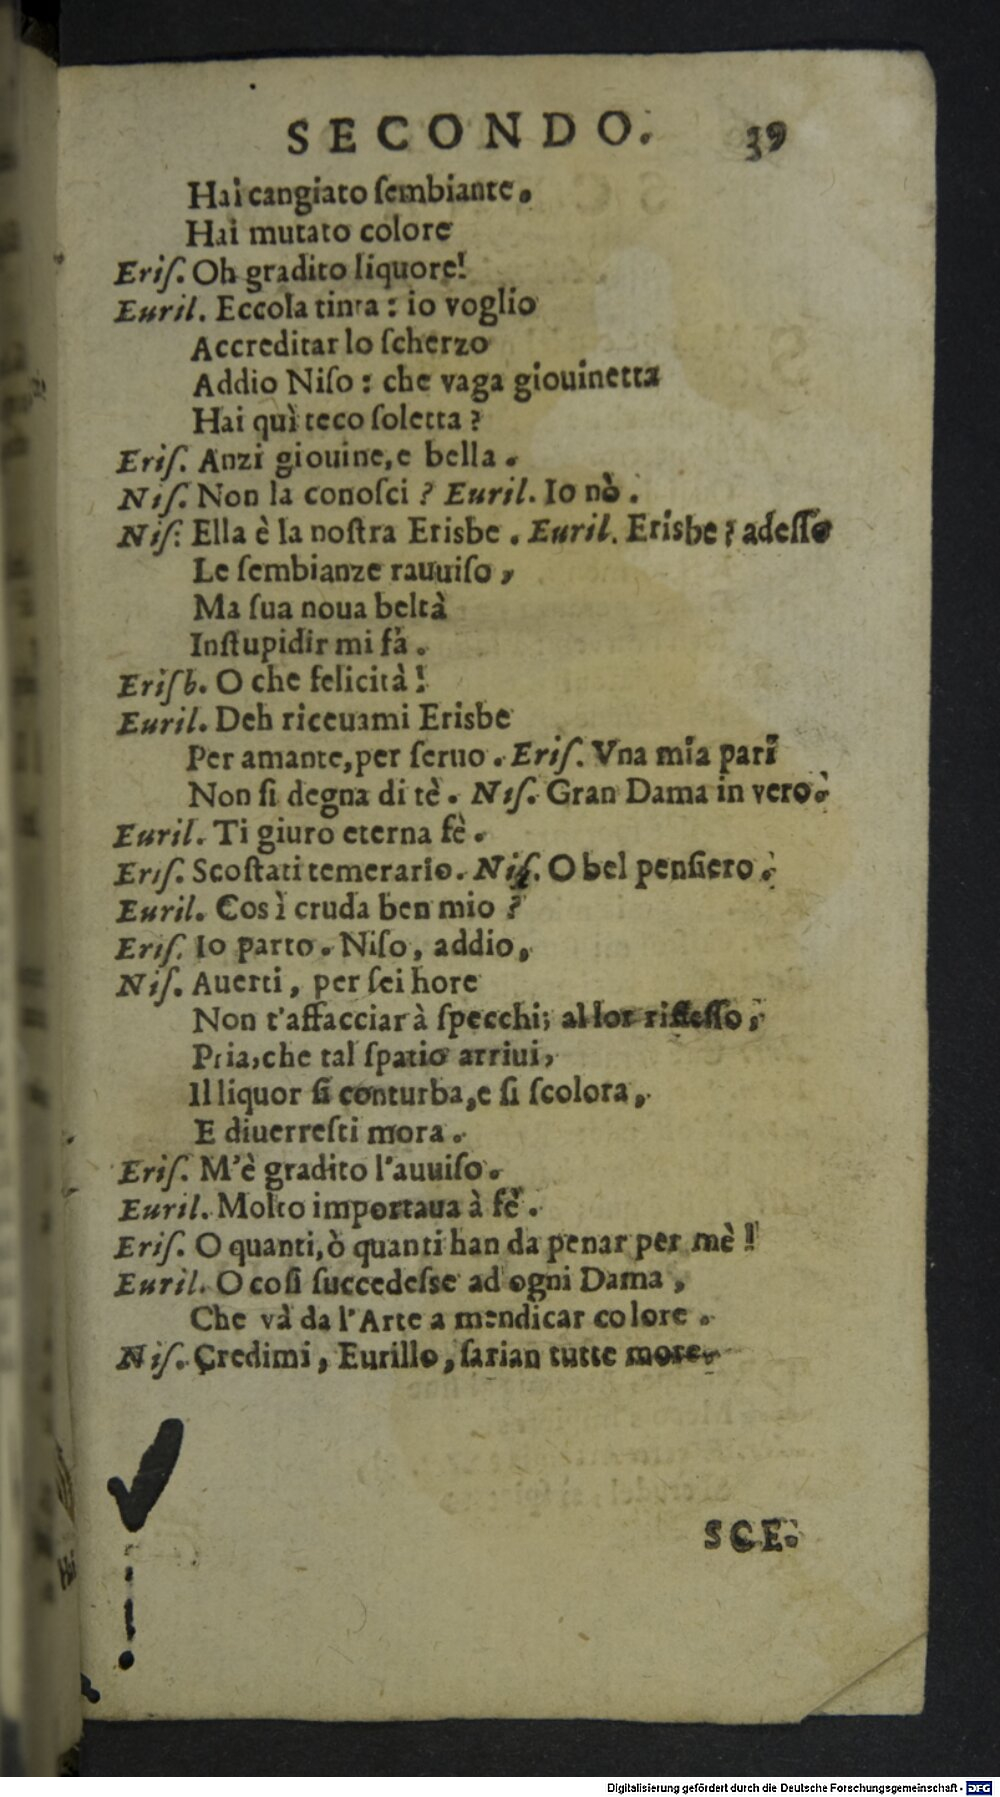 SECONDO. 39
Hai cangiato ſembiante.
Hai mutato colore
Eriſ. Oh gradito liquore!
Euril. Eccola tinta: io voglio
Accreditar lo ſcherzo
Addio Niſo: che vaga giouinetta
Hai quì teco ſoletta?
Eriſ. Anzi giouine, e bella.
Niſ. Non la conoſci? Euril. Io nò.
Niſ: Ella è la noſtra Erisbe. Euril. Erisbe? adeſſo
Le ſembianze rauuiſo,
Ma ſua noua beltà
Inſtupidir mi fà.
Eriſb. O che felicità!
Euril. Deh riceuami Erisbe
Per amante, per ſeruo. Eriſ. Vna mia pari
Non ſi degna di tè. Niſ. Gran Dama in vero.
Euril. Ti giuro eterna fè.
Eriſ. Scoſtati temerario. Niſ. O bel penſiero.
Euril. Così cruda ben mio?
Eriſ. Io parto. Niſo, addio,
Niſ. Auerti, per ſei hore
Non t'affacciar à ſpecchi; al lor rifleſſo,
Pria, che tal ſpatio arriui,
Il liquor ſi conturba, e ſi ſcolora,
E diuerreſti mora.
Eriſ. M'è gradito l'auuiſo.
Euril. Molto importaua à fè.
Eriſ. O quanti, ò quanti han da penar per mè!
Euril. O coſi ſuccedeſse ad ogni Dama,
Che và da l'Arte a mendicar colore.
Niſ. Credimi, Eurillo, ſarian tutte more.
SCE.
Digitalisierung gefördert durch die Deutsche Forschungsgemeinschaft - DFG